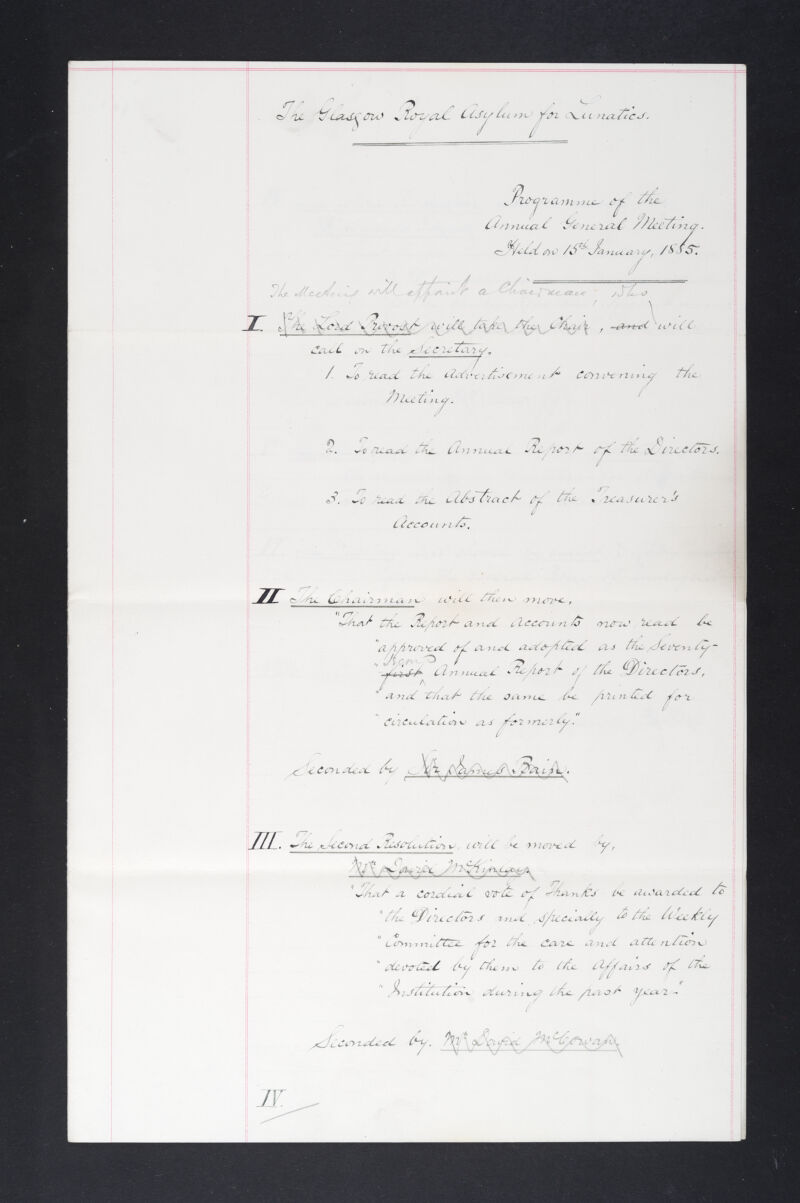 The Glasgow Royal Asylum for Lunatics.
Programme of the
Annual General Meeting.
Held on 15th January, 1885.
The Meeting will appoint a Chairman, who
I. The Lord Provost will take the Chair, and will
call on the Secretary.
1. To read the Advertisement convening the
Meeting.
2. To read the Annual Report of the Directors.
3. To read the Abstract of the Treasurer's
Accounts.
II The Chairman will then move,
"That the Report and Accounts now read be
"approved of and adopted as the Seventy-
"first Annual Report of the Directors,
"and that the same be printed for
"circulation as formerly."
Seconded by Sir James Bain.
III. The Second Resolution will be moved by,
Mr David McKinlay
"That a cordial vote of Thanks be awarded to
"the Directors and specially to the Weekly
"Committee for the care and attention
"devoted by them to the Affairs of the
"Institution during the past year."
Seconded by. Mr David McCowan
IV.